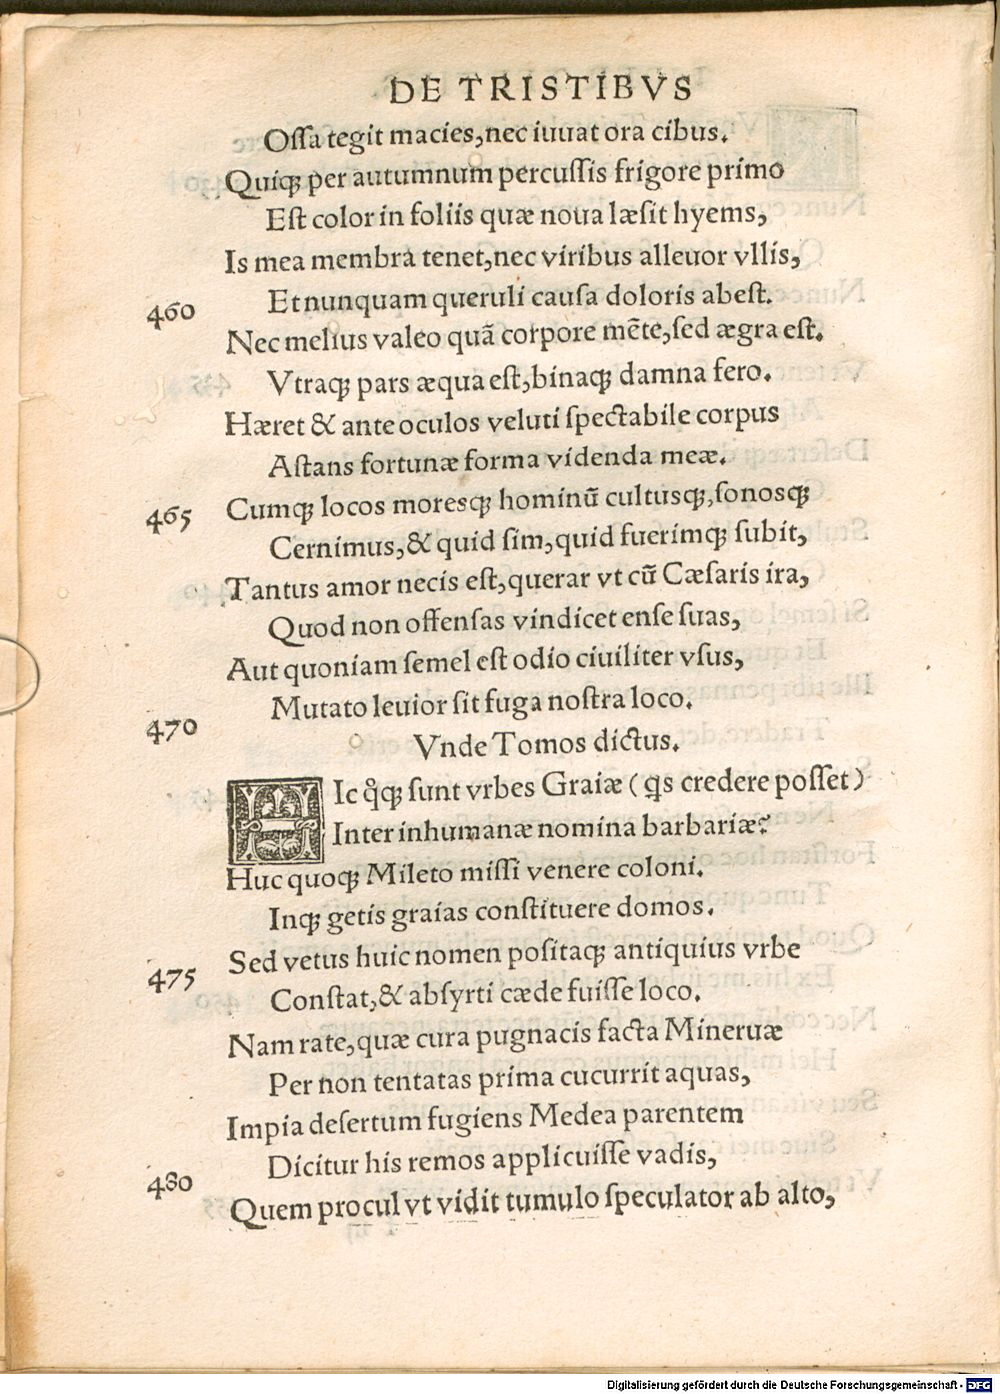 DE TRISTIBVS
Oſſa tegit macies,nec iuuat ora cibus.
Quiqꝫ per autumnum percuſſis frigore primo
Eſt color in foliis quæ noua læſit hyems,
Is mea membra tenet,nec viribus alleuor vllis,
460 Et nunquam queruli cauſa doloris abeſt.
Nec melius valeo quã corpore mẽte,ſed ægra eſt.
Vtraqꝫ pars æqua eſt,binaqꝫ damna fero.
Hæret & ante oculos veluti ſpectabile corpus
Aſtans fortunæ forma videnda meæ.
465 Cumqꝫ locos moresqꝫ hominũ cultusqꝫ,ſonosqꝫ
Cernimus,& quid ſim,quid fuerimqꝫ ſubit,
Tantus amor necis eſt,querar vt cũ Cæſaris ira,
Quod non offenſas vindicet enſe ſuas,
Aut quoniam ſemel eſt odio ciuiliter vſus,
470 Mutato leuior ſit fuga noſtra loco.
Vnde Tomos dictus.
HIc qͦqꝫ ſunt vrbes Graiæ (ꝗs credere poſſet)
Inter inhumanæ nomina barbariæ?
Huc quoqꝫ Mileto miſſi venere coloni.
Inqꝫ getis graias conſtituere domos.
475 Sed vetus huic nomen poſitaqꝫ antiquius vrbe
Conſtat,& abſyrti cæde fuiſſe loco.
Nam rate,quæ cura pugnacis facta Mineruæ
Per non tentatas prima cucurrit aquas,
Impia deſertum fugiens Medea parentem
480 Dicitur his remos applicuiſſe vadis,
Quem procul vt vidit tumulo ſpeculator ab alto,
Digitalisierung gefördert durch die Deutsche Forschungsgemeinschaft - DFG